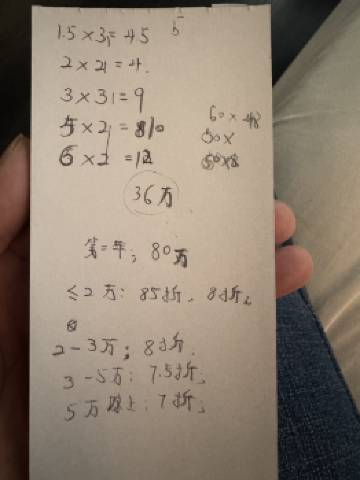 1.5×3=45
2×2=4.
3×3=9
5×2=10
6×2=12
60×48
50×
50×8
36万
第一年; 80万
≤2万: 85折. 8折.
2-3万; 8折.
3-5万: 7.5折;
5万以上: 7折;